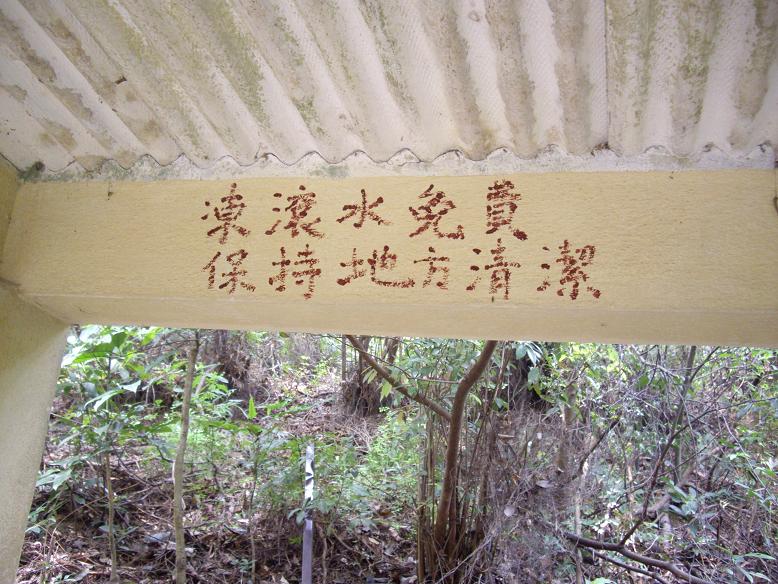 凍滾水免費
保持地方清潔